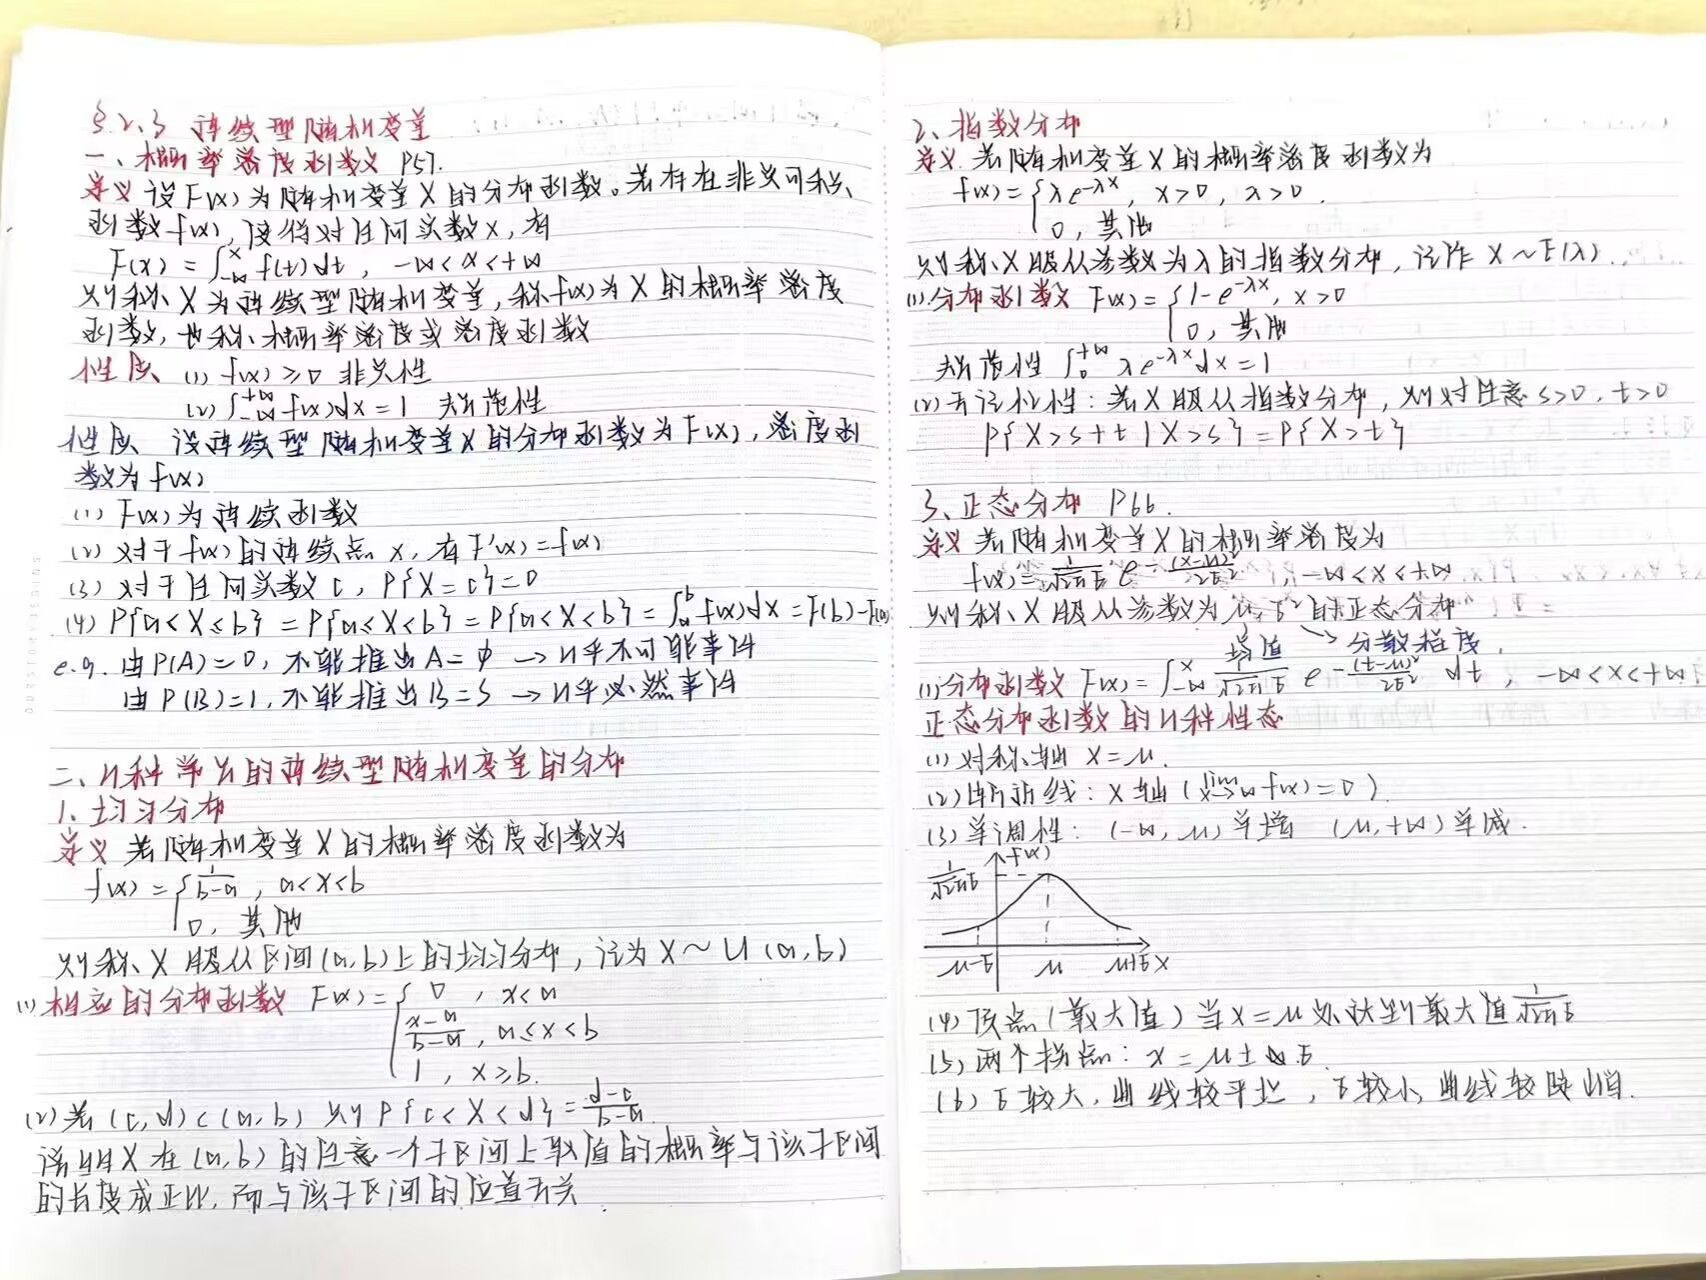 §2.3 连续型随机变量
一、概率密度函数 P57.
定义 设F(x)为随机变量X的分布函数。若存在非负可积
函数f(x),使得对任何实数x,有
F(x)=∫_{-∞}^{x} f(t)dt, -∞<x<+∞
则称X为连续型随机变量,称f(x)为X的概率密度
函数,也称概率密度或密度函数
性质 (1) f(x)≥0 非负性
(2) ∫_{-∞}^{+∞} f(x)dx=1 规范性
性质 设连续型随机变量X的分布函数为F(x),密度函
数为f(x)
(1) F(x)为连续函数
(2) 对于f(x)的连续点x,有F'(x)=f(x)
(3) 对于任何实数c, P{X=c}=0
(4) P{a<X≤b}=P{a≤X<b}=P{a<X<b}=∫_{a}^{b} f(x)dx=F(b)-F(a)
e.g. 由P(A)=0,不能推出A=φ →几乎不可能事件
由P(B)=1,不能推出B=S →几乎必然事件
二、几种常见的连续型随机变量的分布
1、均匀分布
定义 若随机变量X的概率密度函数为
f(x)={1/(b-a), a<x<b
0, 其他
则称X服从区间(a,b)上的均匀分布,记为X~U(a,b)
(1)相应的分布函数 F(x)={0, x<a
(x-a)/(b-a), a≤x<b
1, x≥b.
(2)若(c,d)⊂(a,b) 则P{c<X<d}=(d-c)/(b-a)
说明X在(a,b)的任意一个子区间上取值的概率与该子区间
的长度成正比,而与该子区间的位置无关
2、指数分布
定义 若随机变量X的概率密度函数为
f(x)={λe^{-λx}, x>0, λ>0.
0, 其他
则称X服从参数为λ的指数分布,记作X~E(λ).
(1)分布函数 F(x)={1-e^{-λx}, x>0
0, 其他
规范性 ∫_{0}^{+∞} λe^{-λx}dx=1
(2)无记忆性:若X服从指数分布,则对任意s>0,t>0
P{X>s+t|X>s}=P{X>t}
3、正态分布 P66.
定义 若随机变量X的概率密度为
f(x)=1/(√2π σ) e^{-(x-μ)²/2σ²}, -∞<x<+∞
则称X服从参数为μ,σ²的正态分布
均值 → 分散程度.
(1)分布函数 F(x)=∫_{-∞}^{x} 1/(√2π σ) e^{-(t-μ)²/2σ²} dt, -∞<x<+∞
正态分布函数的几种性态
(1)对称轴 x=μ.
(2)渐近线:x轴(lim_{x→∞} f(x)=0).
(3)单调性:(-∞,μ)单增 (μ,+∞)单减.
f(x)
1/(√2π σ)
μ-σ μ μ+σ x
(4)顶点(最大值)当x=μ处达到最大值1/(√2π σ)
(5)两个拐点:x=μ±σ.
(6)σ较大,曲线较平坦,σ较小,曲线较陡峭.